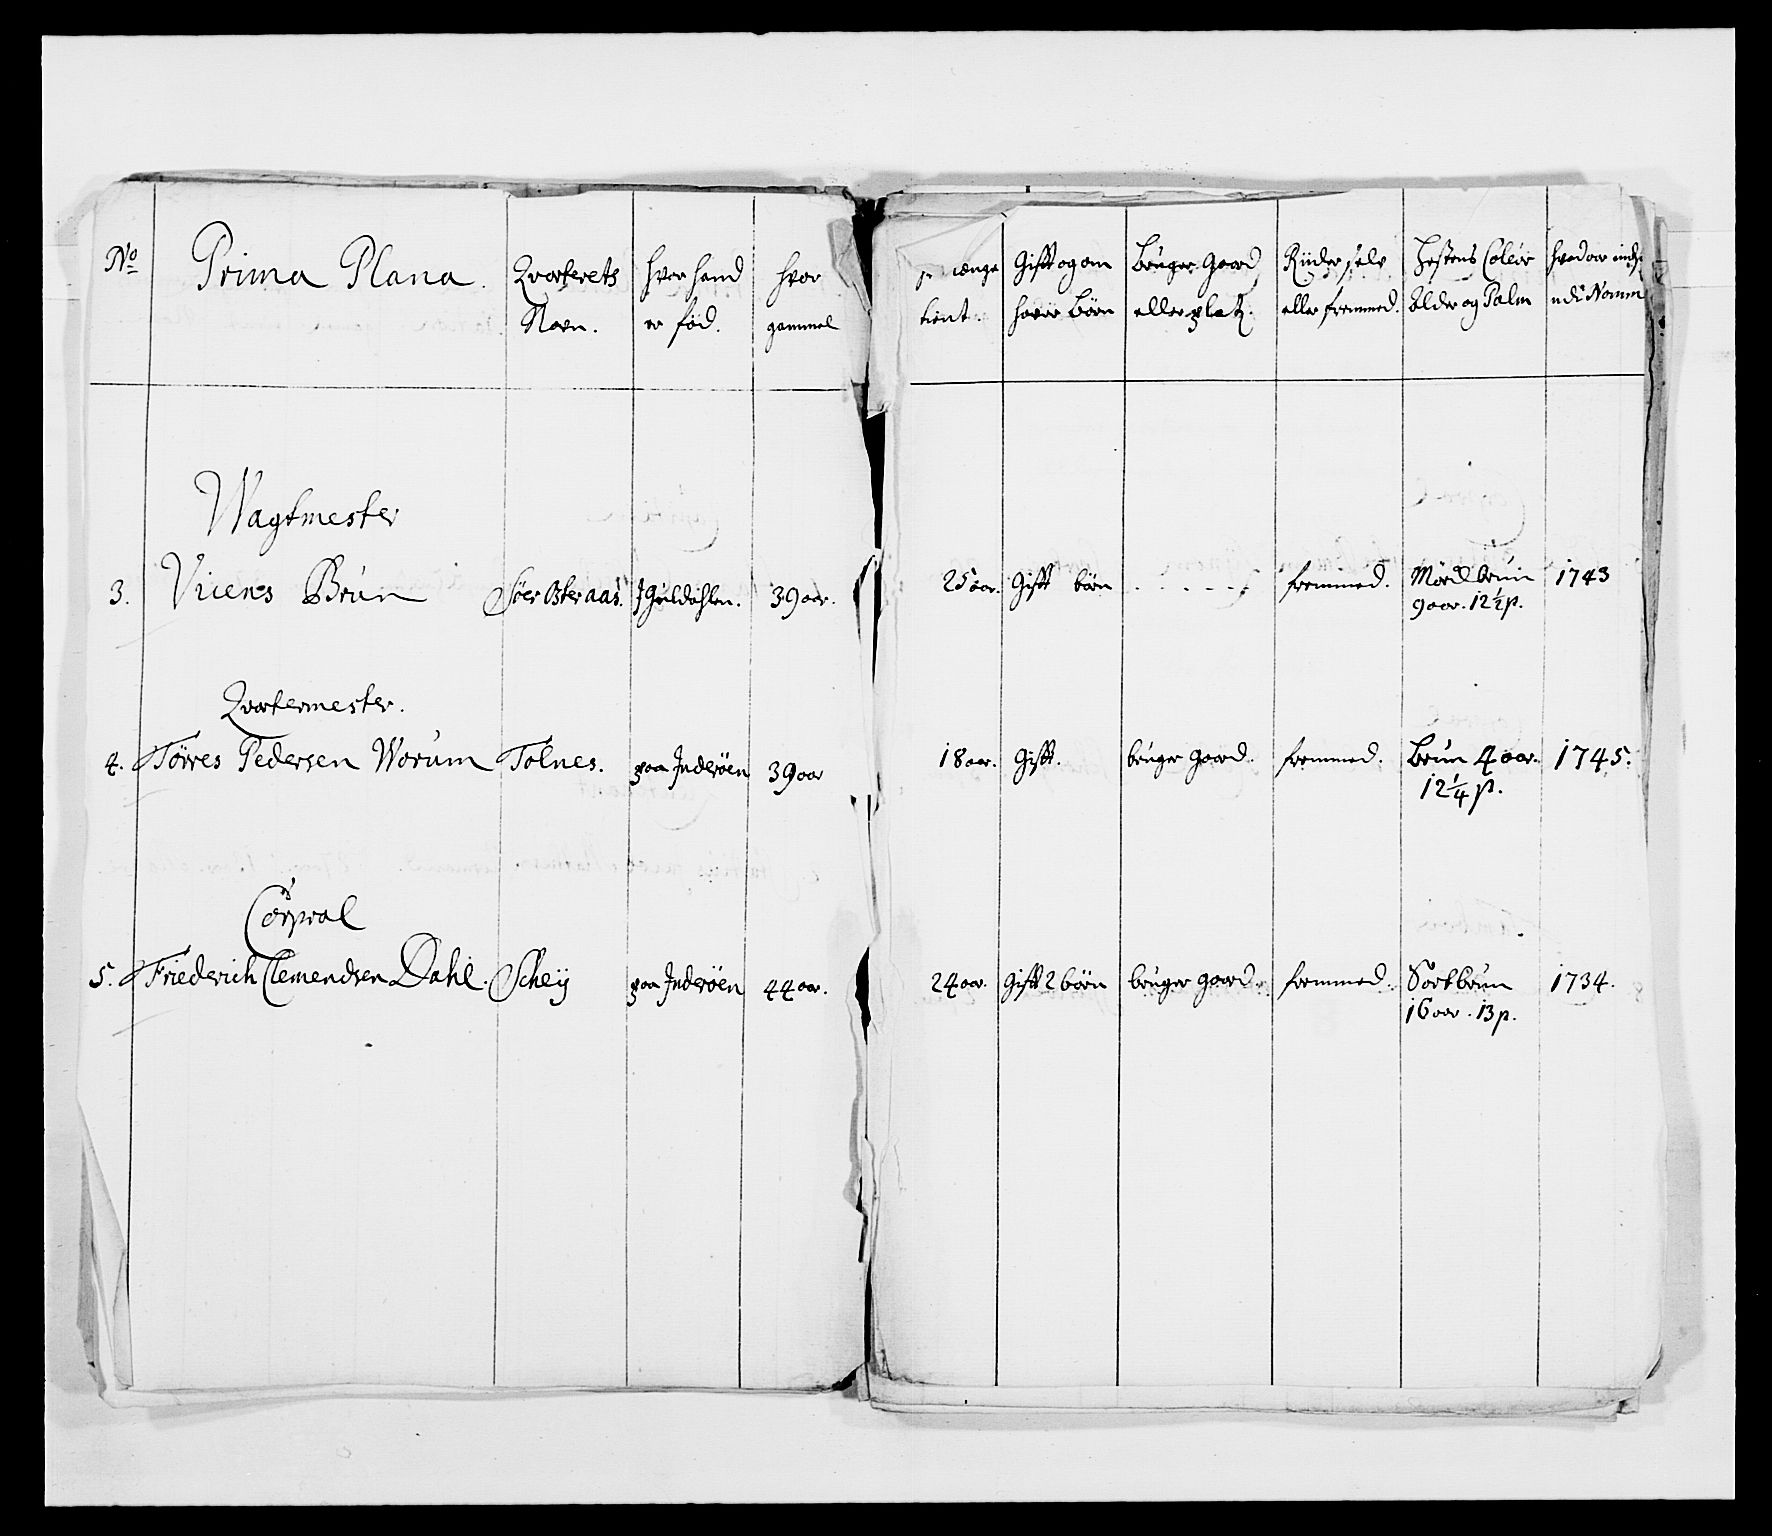 No Prima Plana. Qvarterets Navn. hvor hand er fød. hvor gammel længe tient. Gifft og om haver Børn bruger Gaard eller platz. Riider selv eller fremmed. Hestens Coleur Alder og Palm hvad aar inds: udi Nomm
Wagtmester
3. Viiens Brun Söer Osteraas. J Guldahlen. 39 aar. 25 aar. Gifft børn . . . . . fremmed. Mörckbrun 1743
9 aar. 12½ p.
Qvartermester.
4. Törres Pedersen Worum Tolnes. paa Inderöen 39 aar 18 aar. Gifft. bruger gaard. fremmed. Brun 4 aar. 1745.
12¼ p.
Corporal
5. Friederich Clemendsen Dahl. Scheÿ paa Inderöen 44 aar. 24 aar. Gifft 2 børn bruger gaard. fremmed. Sortbrun 1734.
16 aar. 13 p.